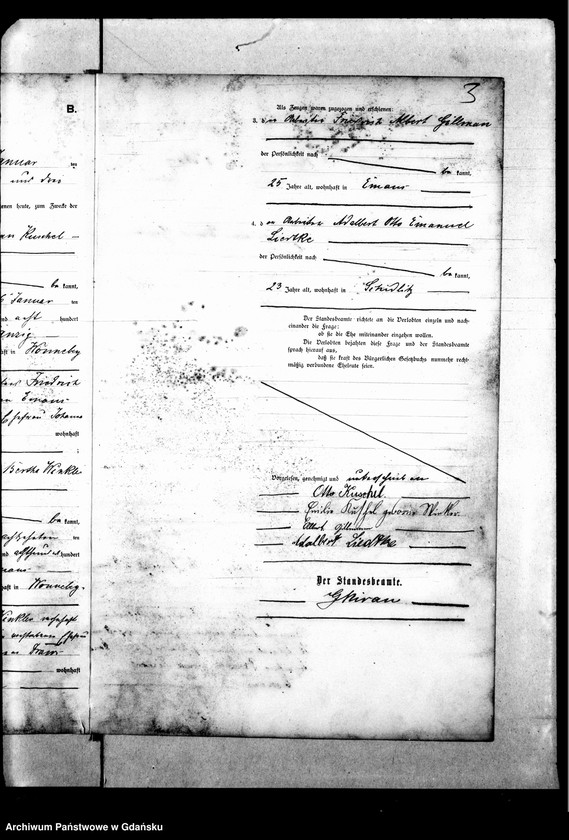 B.
Januar ten
und drei
enen heute, zum Zwecke der
Kuschel
be kannt,
Januar ten
nd acht hundert
anzig
aft in Wonneberg
Friedrich
Emaus
Ehefrau Johanna
wohnhaft
Bertha Winkler
be kannt,
nd achthundert
haft in Wonneberg
Winkler
wohnhaft
3
Als Zeugen waren zugezogen und erschienen:
3. der Arbeiter Friedrich Albert Gillmann
der Persönlichkeit nach
be kannt,
25 Jahre alt, wohnhaft in Emaus
4. der Arbeiter Adalbert Otto Emanuel
Liedtke
der Persönlichkeit nach
be kannt,
23 Jahre alt, wohnhaft in Schidlitz
Der Standesbeamte richtete an die Verlobten einzeln und nach-
einander die Frage:
ob sie die Ehe miteinander eingehen wollen.
Die Verlobten bejahten diese Frage und der Standesbeamte
sprach hierauf aus,
daß sie kraft des Bürgerlichen Gesetzbuchs nunmehr recht-
mäßig verbundene Eheleute seien.
Vorgelesen, genehmigt und unterschrieben
Otto Kuschel.
Emilie Kuschel geborne Winkler.
Albert Gillmann
Adalbert Liedtke
Der Standesbeamte.
Archiwum Państwowe w Gdańsku